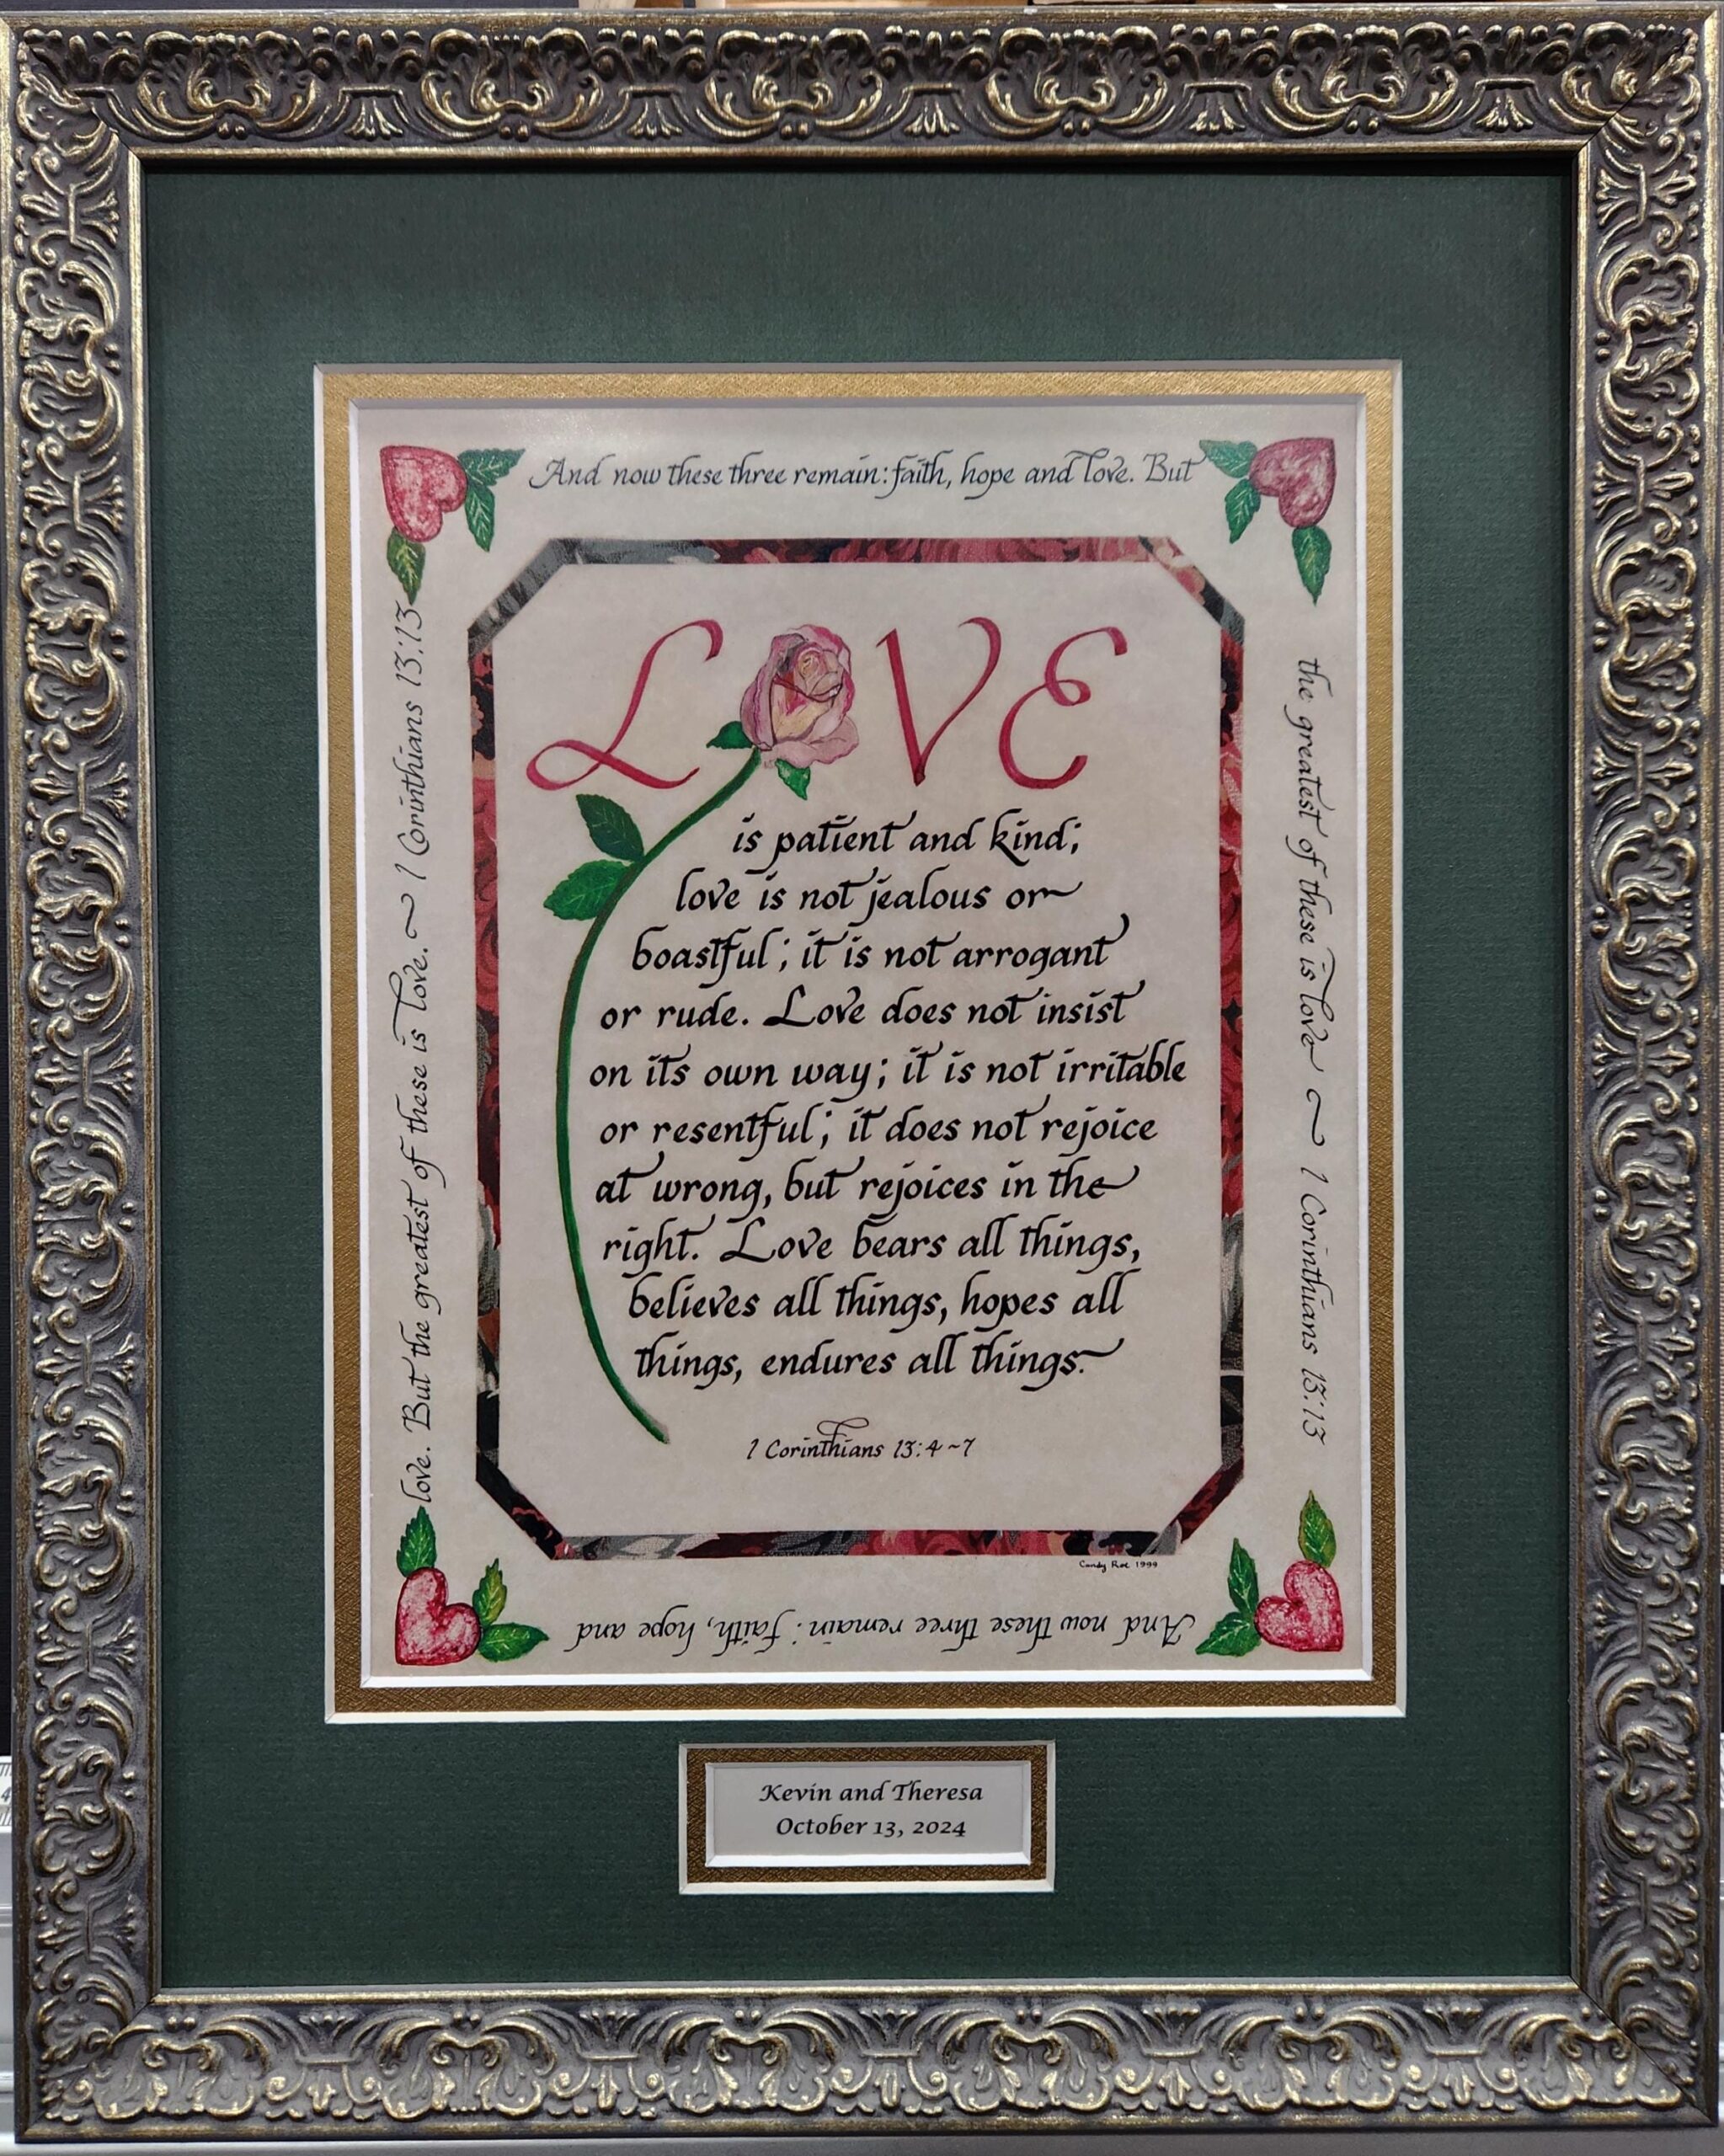 And now these three remain: faith, hope and love. But
the greatest of these is love ~ 1 Corinthians 13:13
And now these three remain: faith, hope and
love. But the greatest of these is love. ~ 1 Corinthians 13:13
LOVE
is patient and kind;
love is not jealous or
boastful; it is not arrogant
or rude. Love does not insist
on its own way; it is not irritable
or resentful; it does not rejoice
at wrong, but rejoices in the
right. Love bears all things,
believes all things, hopes all
things, endures all things.
1 Corinthians 13:4~7
Candy Roe 1999
Kevin and Theresa
October 13, 2024